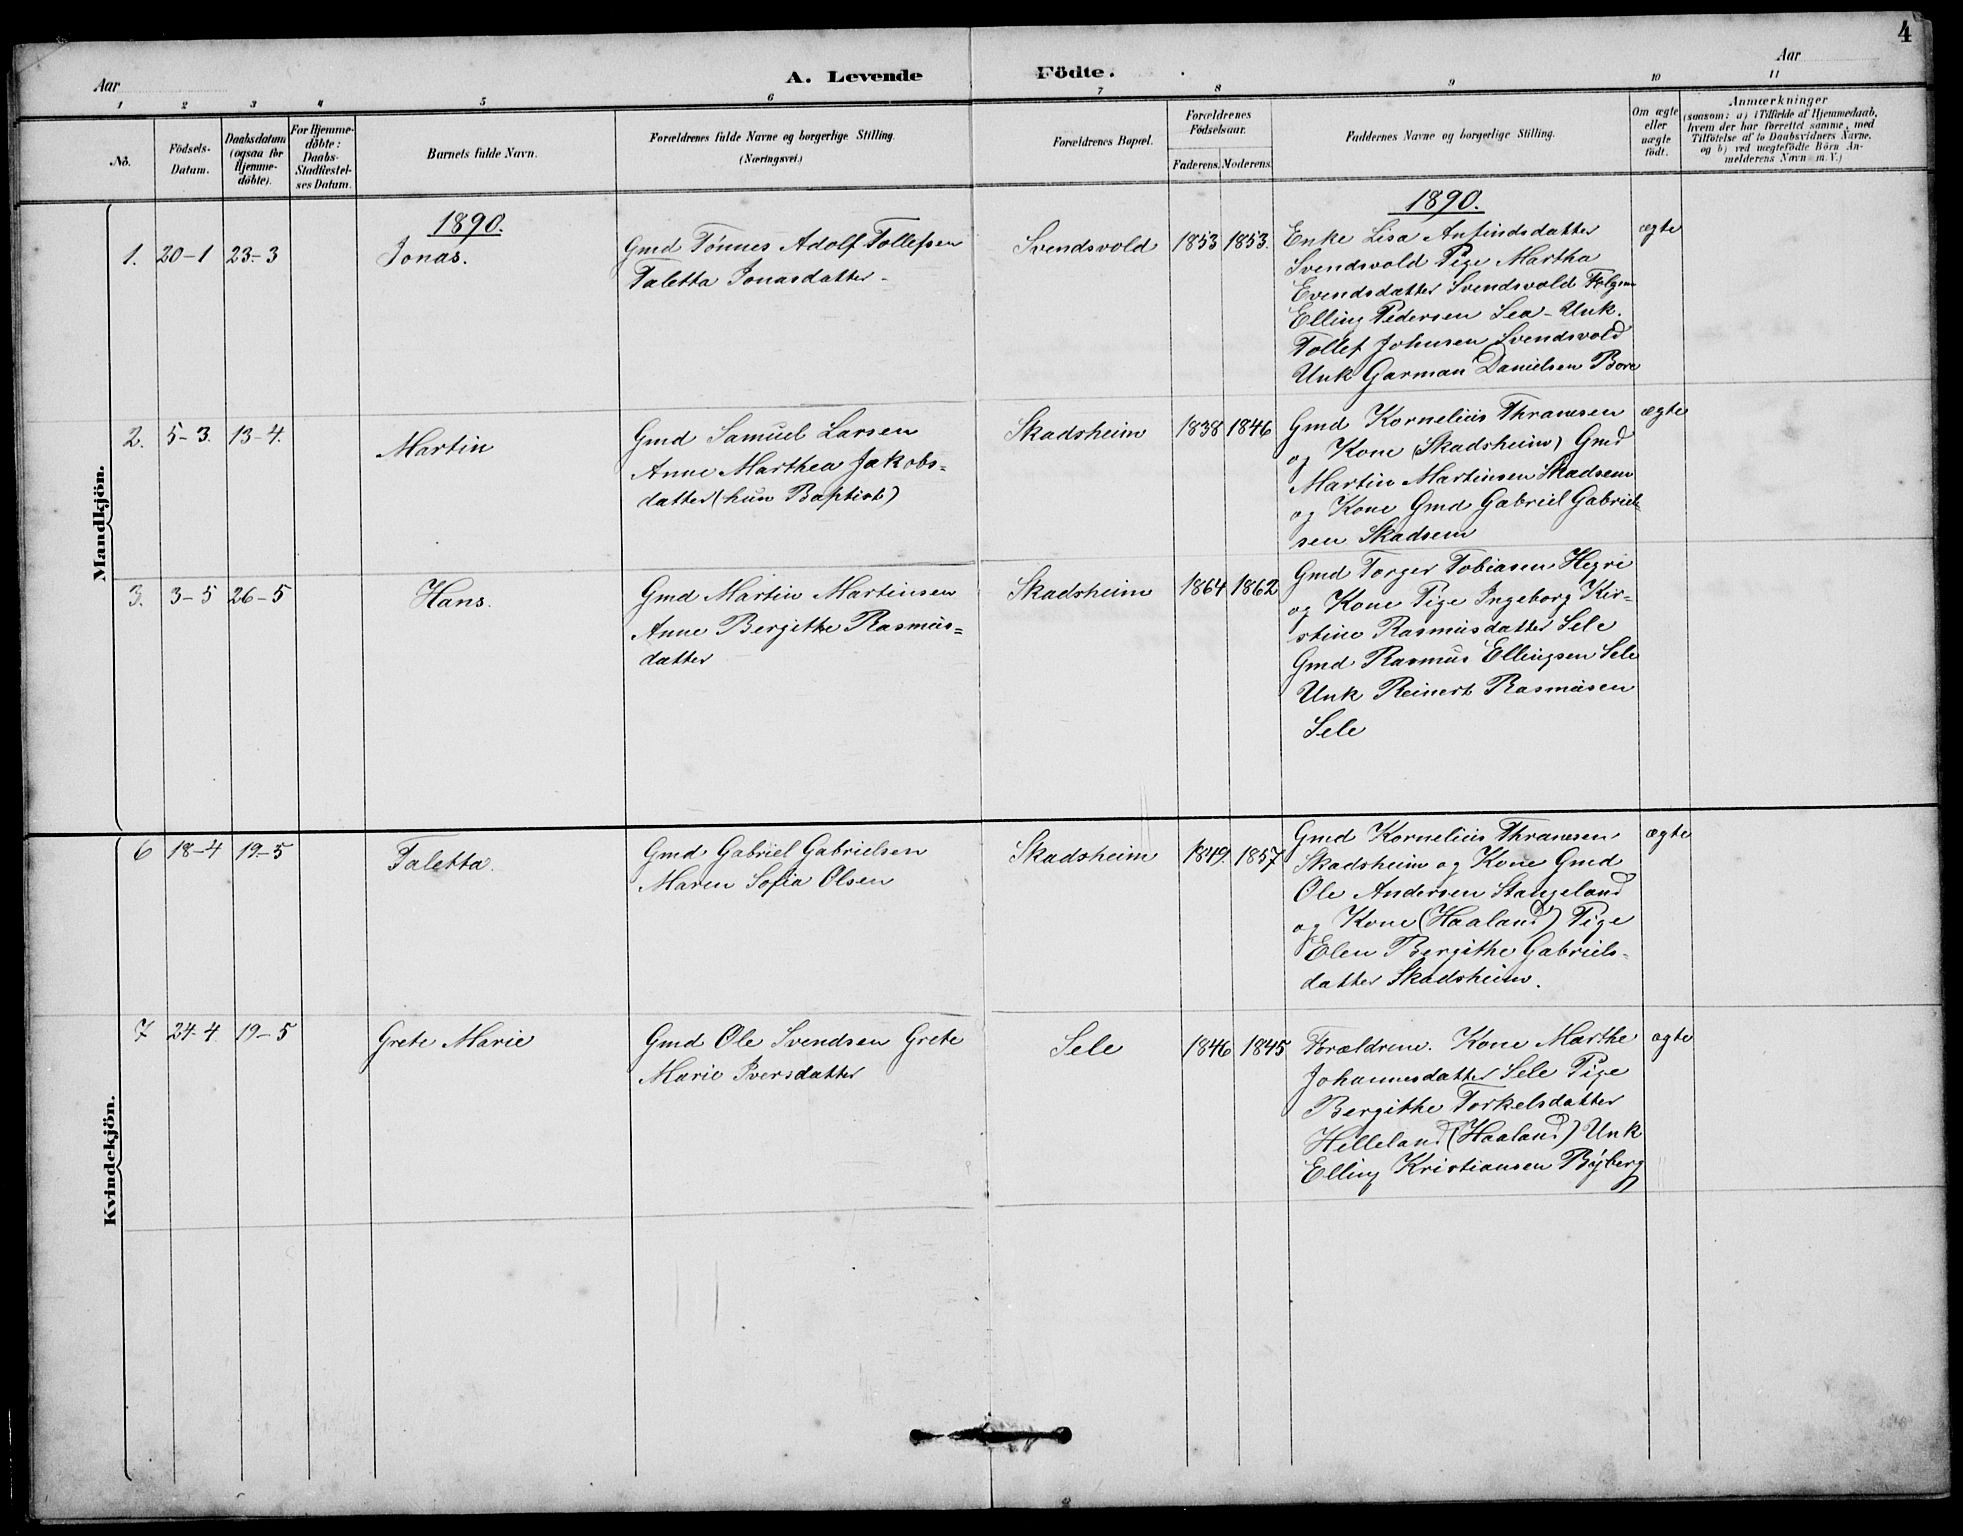 4
Aar
A. Levende Födte.
Aar
1 2 3 4 5 6 7 8 9 10 11
No.
Födsels-
Datum.
Daabsdatum
(ogsaa for
Hjemme-
döbte).
For Hjemme-
döbte:
Daabs-
Stadfæstel-
ses Datum.
Barnets fulde Navn.
Forældrenes fulde Navne og borgerlige Stilling.
(Næringsvei.)
Forældrenes Bopæl.
Forældrenes
Födselsaar.
Faderens. Moderens.
Faddernes Navne og borgerlig Stilling.
Om ægte
eller
uægte
födt.
Anmærkninger
(saasom: a) i Tilfælde af Hjemmedaab,
hvem der har forrettet samme, med
Tilföielse af to Daabsvidners Navne,
og b) ved uægtefödte Börn An-
melderens Navn m. V.)
Mandkjön.
1890.
1890.
1. 20-1 23-3 Jonas.
Gmd Tönnes Adolf Tollefsen
Taletta Jonasdatter
Svendsvold 1853 1853.
Enke Lisa Anfindsdatter
Svendsvold Pige Martha
Evendsdatter Svendsvold
Elling Pedersen Sea - Unk.
Tollef Johnsen Svendsvold
Unk Garman Danielsen Bore
ægte
2. 5-3. 13-4. Martin
Gmd Samuel Larsen
Anne Marthea Jakobs=
datter (hun Baptist)
Skadsheim 1838 1846
Gmd Kornelius Thranesen
og Kone (Skadsheim) Gmd
Martin Martinsen Skadsem
og Kone Gmd Gabriel Gabriel-
sen Skadsem
ægte
3. 3-5 26-5 Hans.
Gmd Martin Martinsen
Anne Bergithe Rasmus=
datter
Skadsheim 1864 1862
Gmd Torger Tobiasen Hegri
og Kone Pige Ingeborg Kir-
stine Rasmusdatter Sele
Gmd Rasmus Ellingsen Sele
Unk Reinert Rasmusen
Sele
Kvindekjön.
6 18-4 19-5 Taletta.
Gmd Gabriel Gabrielsen
Maren Sofia Olsen
Skadsheim 1849. 1857
Gmd Kornelius Thranesen
Skadsheim og Kone Gmd
Ole Andersen Stangeland
og Kone (Haaland) Pige
Elen Bergithe Gabriels-
datter Skadsheim.
ægte
7 24-4 19-5 Grete Marie
Gmd Ole Svendsen Grete
Marie Iversdatter
Sele 1846 1845
Forældrene. Kone Marthe
Johannesdatter Sele Pige
Bergithe Torkelsdatter
Helleland (Haaland) Unk
Elling Kristiansen Byberg
ægte